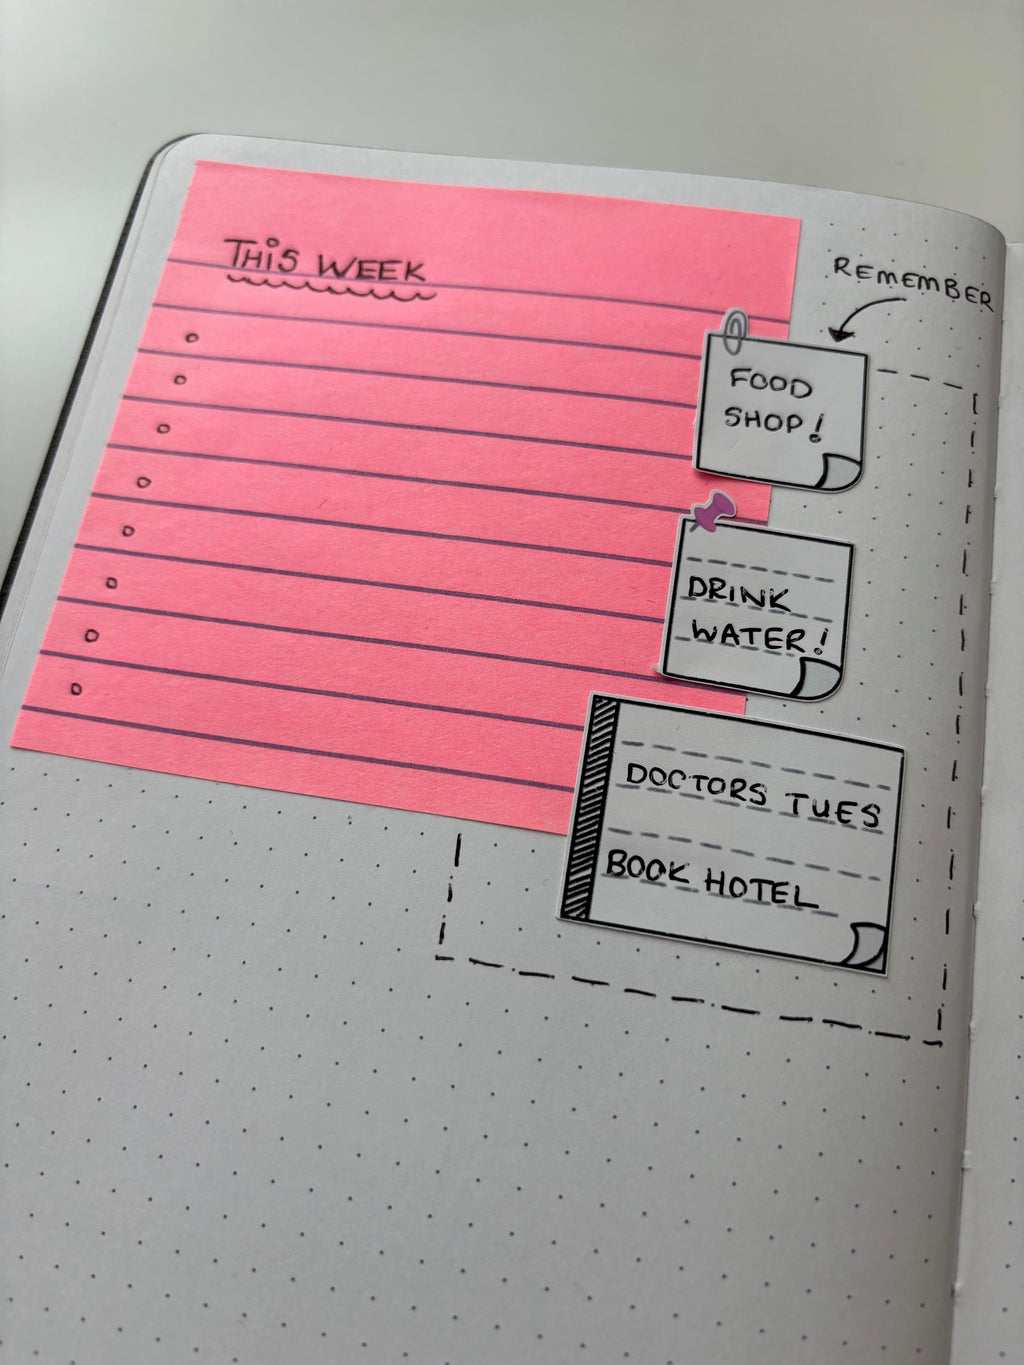 THIS WEEK
REMEMBER
FOOD
SHOP!
DRINK
WATER!
DOCTORS TUES
BOOK HOTEL